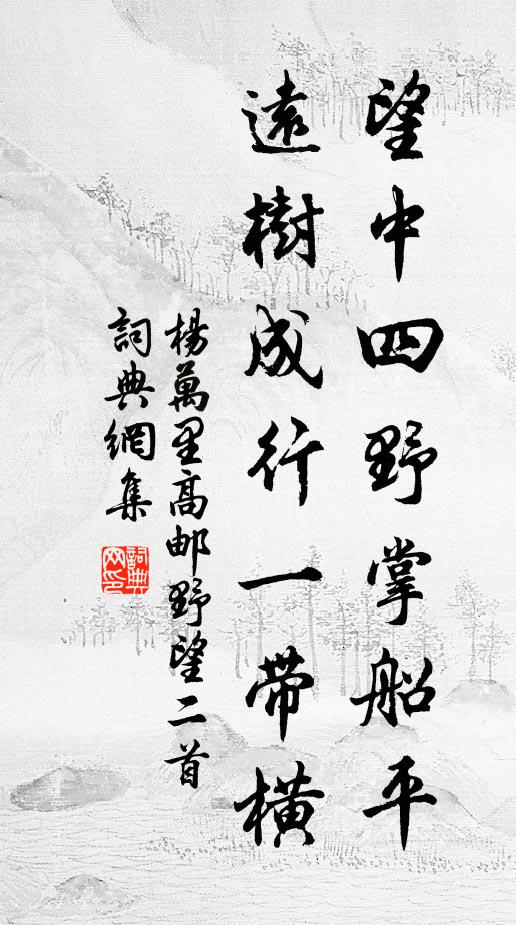 望中四野掌船平
遠樹成行一带橫
楊萬里高邮野望二首
詞典網集
詞典網印